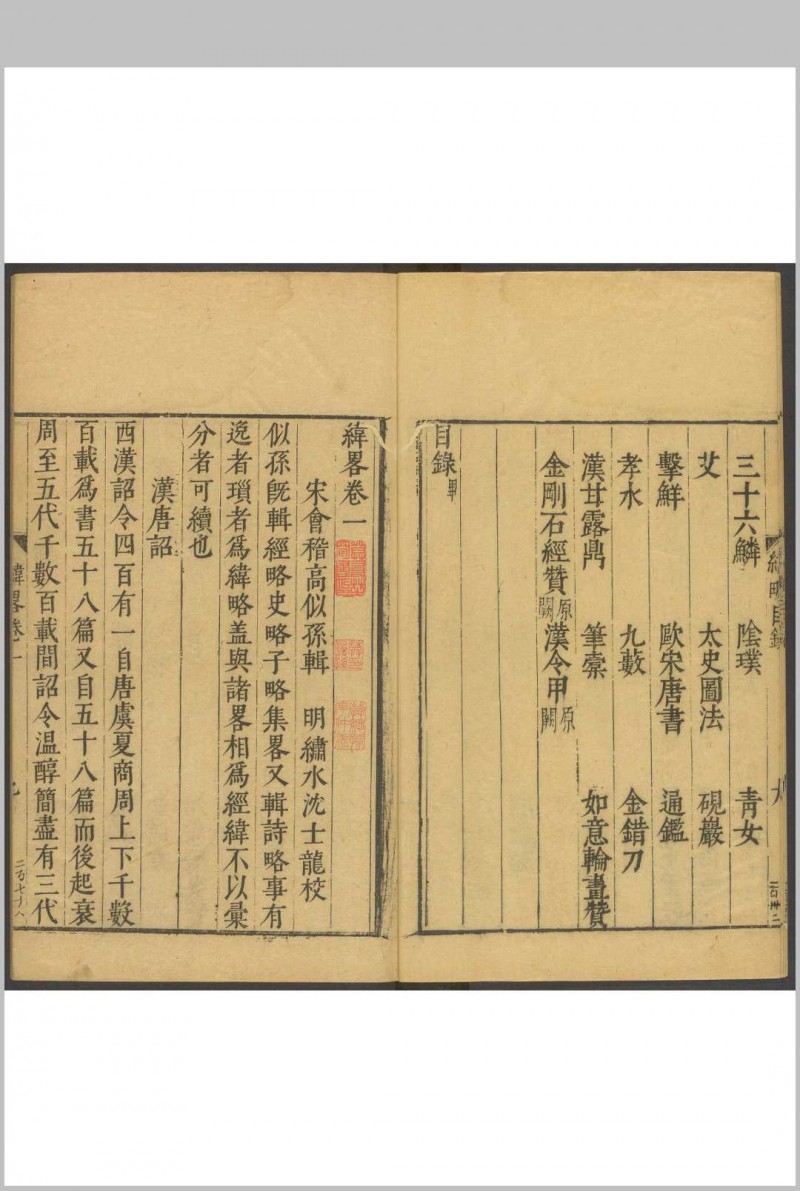 三十六鱗 陰璞 青女
艾 太史圖法 硯巖
擊鮮 歐宋唐書 通鑑
孝水 九藪 金錯刀
漢甘露鼎 筆橐 如意輪畫贊
金剛石經贊原闕 漢令甲原闕
目錄畢
緯畧卷一
宋會稽高似孫輯 明繡水沈士龍校
似孫旣輯經略史略子略集畧又輯詩略事有
逸者瑣者爲緯略盖與諸畧相爲經緯不以彙
分者可續也
漢唐詔
西漢詔令四百有一自唐虞夏商周上下千數
百載爲書五十八篇又自五十八篇而後起衰
周至五代千數百載間詔令温醇簡盡有三代
緯畧卷一